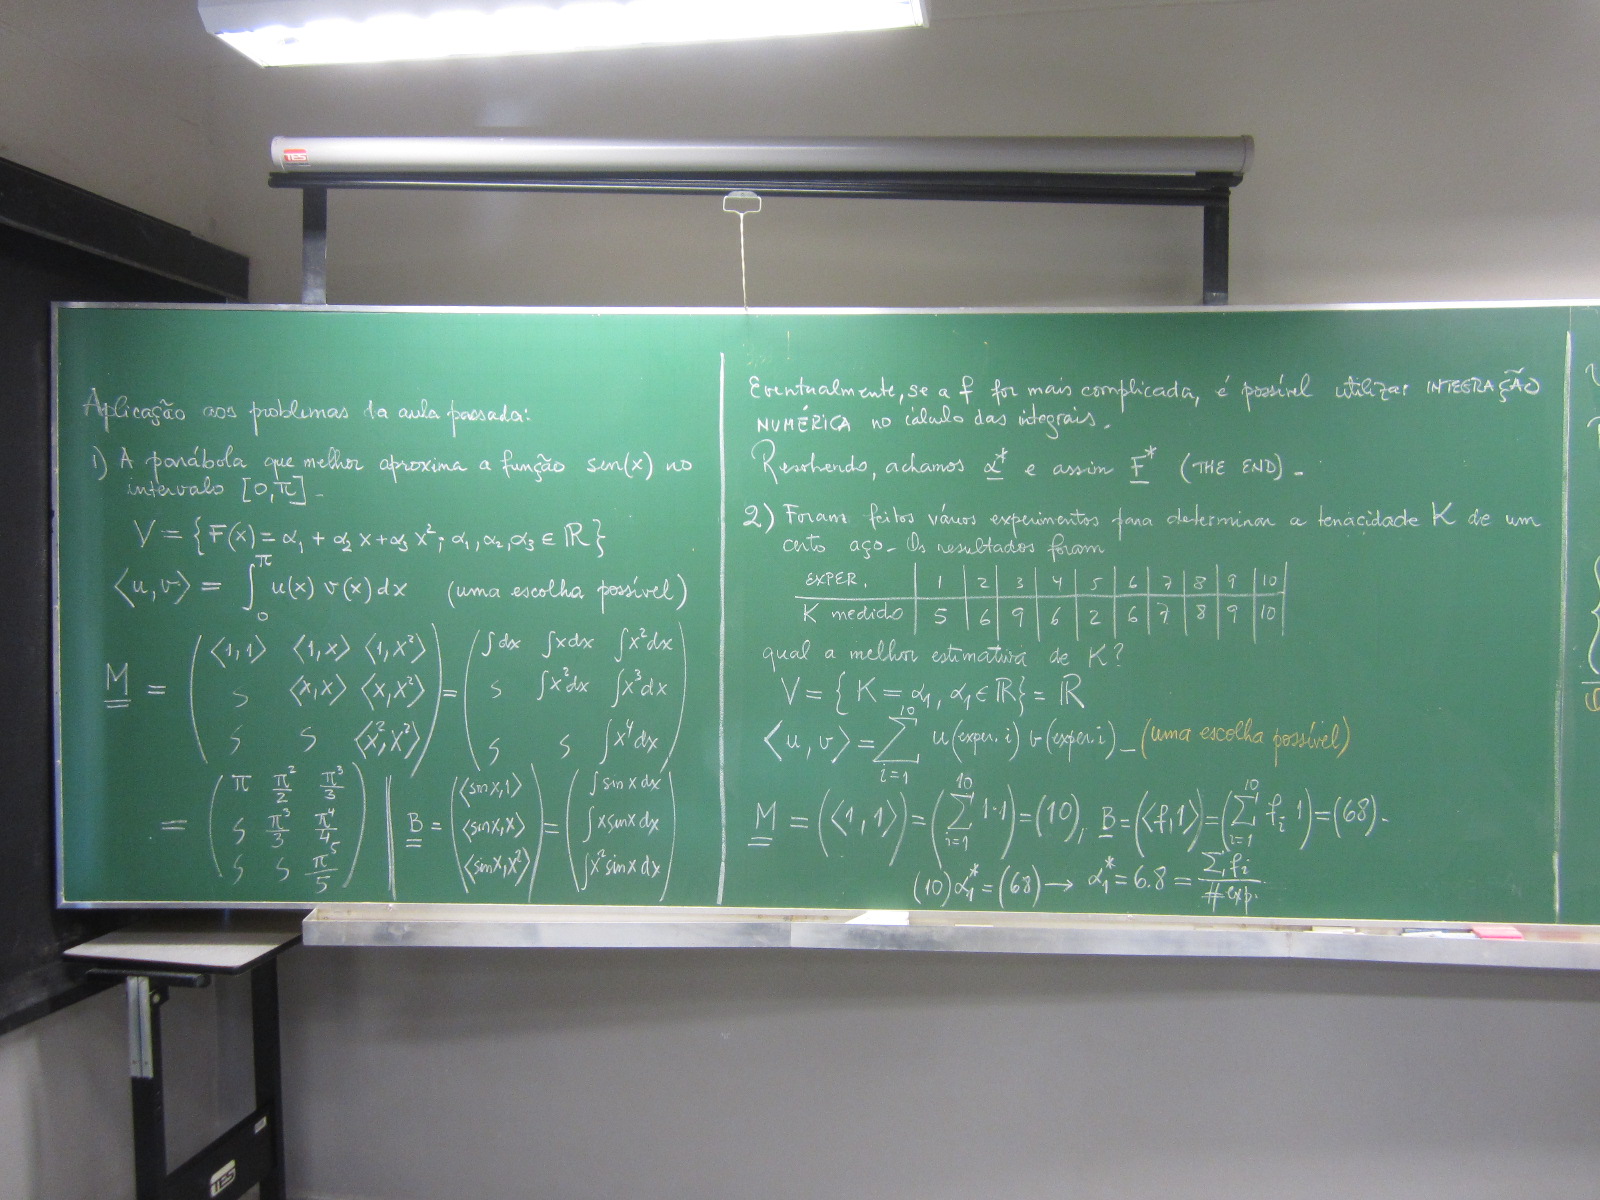 Aplicação aos problemas da aula passada:
1) A parábola que melhor aproxima a função sen(x) no
intervalo [0,π] -
V = {F(x) = α₁ + α₂ x + α₃ x²; α₁, α₂, α₃ ∈ ℝ}
⟨u,v⟩ = ∫₀^π u(x) v(x) dx (uma escolha possível)
⟨1,1⟩ ⟨1,x⟩ ⟨1,x²⟩ ∫dx ∫xdx ∫x²dx
M = S ⟨x,x⟩ ⟨x,x²⟩ = S ∫x²dx ∫x³dx
S S ⟨x²,x²⟩ S S ∫x⁴dx
π π²/2 π³/3 ⟨sin x,1⟩ ∫sin x dx
= S π³/3 π⁴/4 B = ⟨sin x,x⟩ = ∫x sin x dx
S S π⁵/5 ⟨sin x,x²⟩ ∫x² sin x dx
Eventualmente, se a f for mais complicada, é possível utilizar INTEGRAÇÃO
NUMÉRICA no cálculo das integrais.
Resolvendo, achamos α* e assim F* (THE END) -
2) Foram feitos vários experimentos para determinar a tenacidade K de um
certo aço - Os resultados foram
EXPER. 1 2 3 4 5 6 7 8 9 10
K medido 5 6 9 6 2 6 7 8 9 10
qual a melhor estimativa de K?
V = { K = α₁, α₁ ∈ ℝ} = ℝ
⟨u,v⟩ = ∑_{i=1}^{10} u(exper. i) v(exper. i) - (uma escolha possível)
M = (⟨1,1⟩) = (∑_{i=1}^{10} 1·1) = (10), B = (⟨f,1⟩) = (∑_{i=1}^{10} f_i 1) = (68).
(10) α₁* = (68) → α₁* = 6.8 = ∑f_i / # exp.
TES
TES